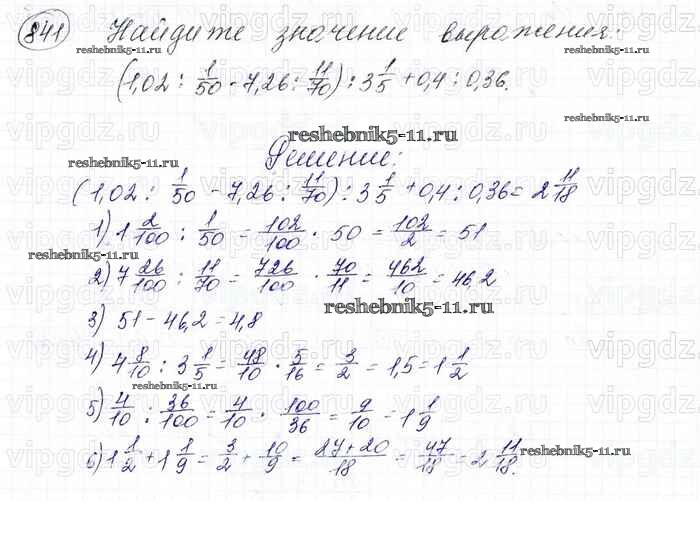 841 Найдите значение выражения:
reshebnik5-11.ru
(1,02 : 1/50 - 7,26 : 11/70) : 3 1/5 + 0,4 : 0,36.
reshebnik5-11.ru
reshebnik5-11.ru
Решение:
(1,02 : 1/50 - 7,26 : 11/70) : 3 1/5 + 0,4 : 0,36 = 2 11/18
1) 1 2/100 : 1/50 = 102/100 · 50 = 102/2 = 51
reshebnik5-11.ru
2) 7 26/100 : 11/70 = 726/100 · 70/11 = 462/10 = 46,2
reshebnik5-11.ru
3) 51 - 46,2 = 4,8
4) 4 8/10 : 3 1/5 = 48/10 · 5/16 = 3/2 = 1,5 = 1 1/2
reshebnik5-11.ru
5) 4/10 : 36/100 = 4/10 · 100/36 = 9/10 - 1 1/9
6) 1 1/2 + 1 1/9 = 3/2 + 10/9 = 27+20/18 = 47/18 = 2 11/18.
reshebnik5-11.ru
vipgdz.ru